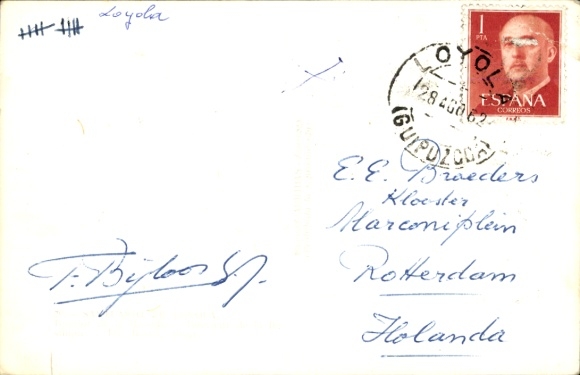 Loyola
1
PTA
ESPAÑA
CORREOS
LOYOLA
28 AGO 62
(GUIPUZCOA)
E.E. Broeders
Klooster
Marconiplein
Rotterdam
Holanda
F. Bijloos S.J.